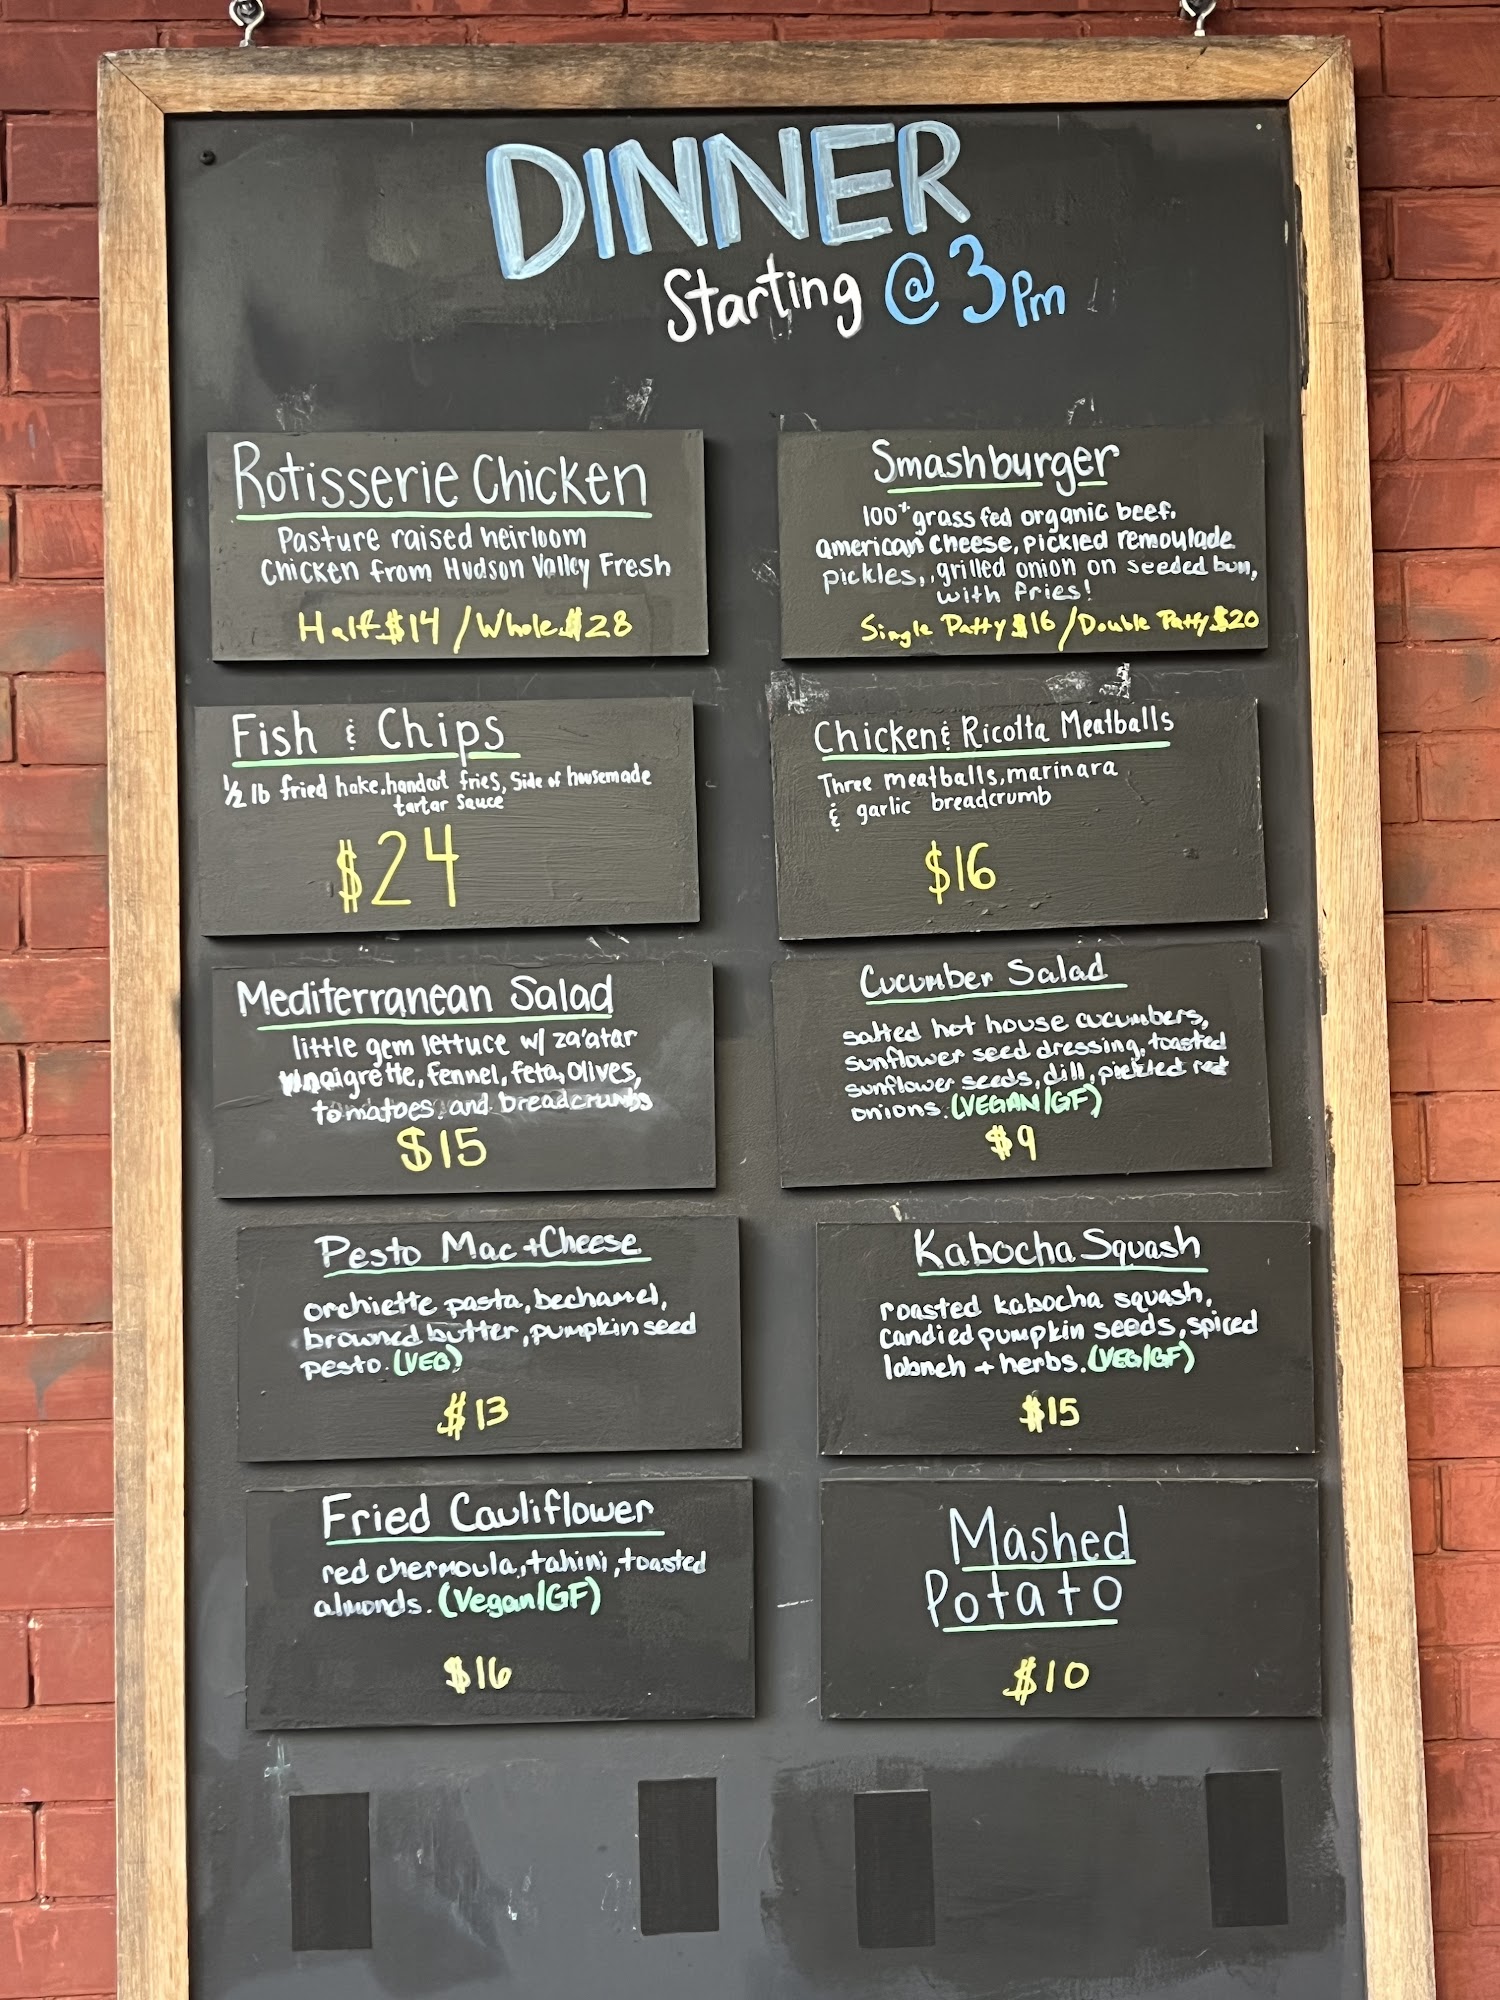 DINNER
Starting @ 3pm
Rotisserie Chicken
Pasture raised heirloom
Chicken from Hudson Valley Fresh
Half $14 / Whole $28
Smashburger
100% grass fed organic beef.
american cheese, pickled remoulade
pickles, grilled onion on seeded bun,
with fries!
Single Patty $16 / Double Patty $20
Fish & Chips
1/2 lb fried hake, handcut fries, Side of housemade
tartar sauce
$24
Chicken & Ricotta Meatballs
Three meatballs, marinara
& garlic breadcrumb
$16
Mediterranean Salad
little gem lettuce w/ za'atar
vinaigrette, fennel, feta, olives,
tomatoes, and breadcrumbs
$15
Cucumber Salad
salted hot house cucumbers,
sunflower seed dressing, toasted
sunflower seeds, dill, pickled red
onions. (VEGAN/GF)
$9
Pesto Mac + Cheese
orchiette pasta, bechamel,
browned butter, pumpkin seed
pesto. (VEG)
$13
Kabocha Squash
roasted kabocha squash,
candied pumpkin seeds, spiced
labneh + herbs. (VEG/GF)
$15
Fried Cauliflower
red chermoula, tahini, toasted
almonds. (Vegan/GF)
$16
Mashed
Potato
$10